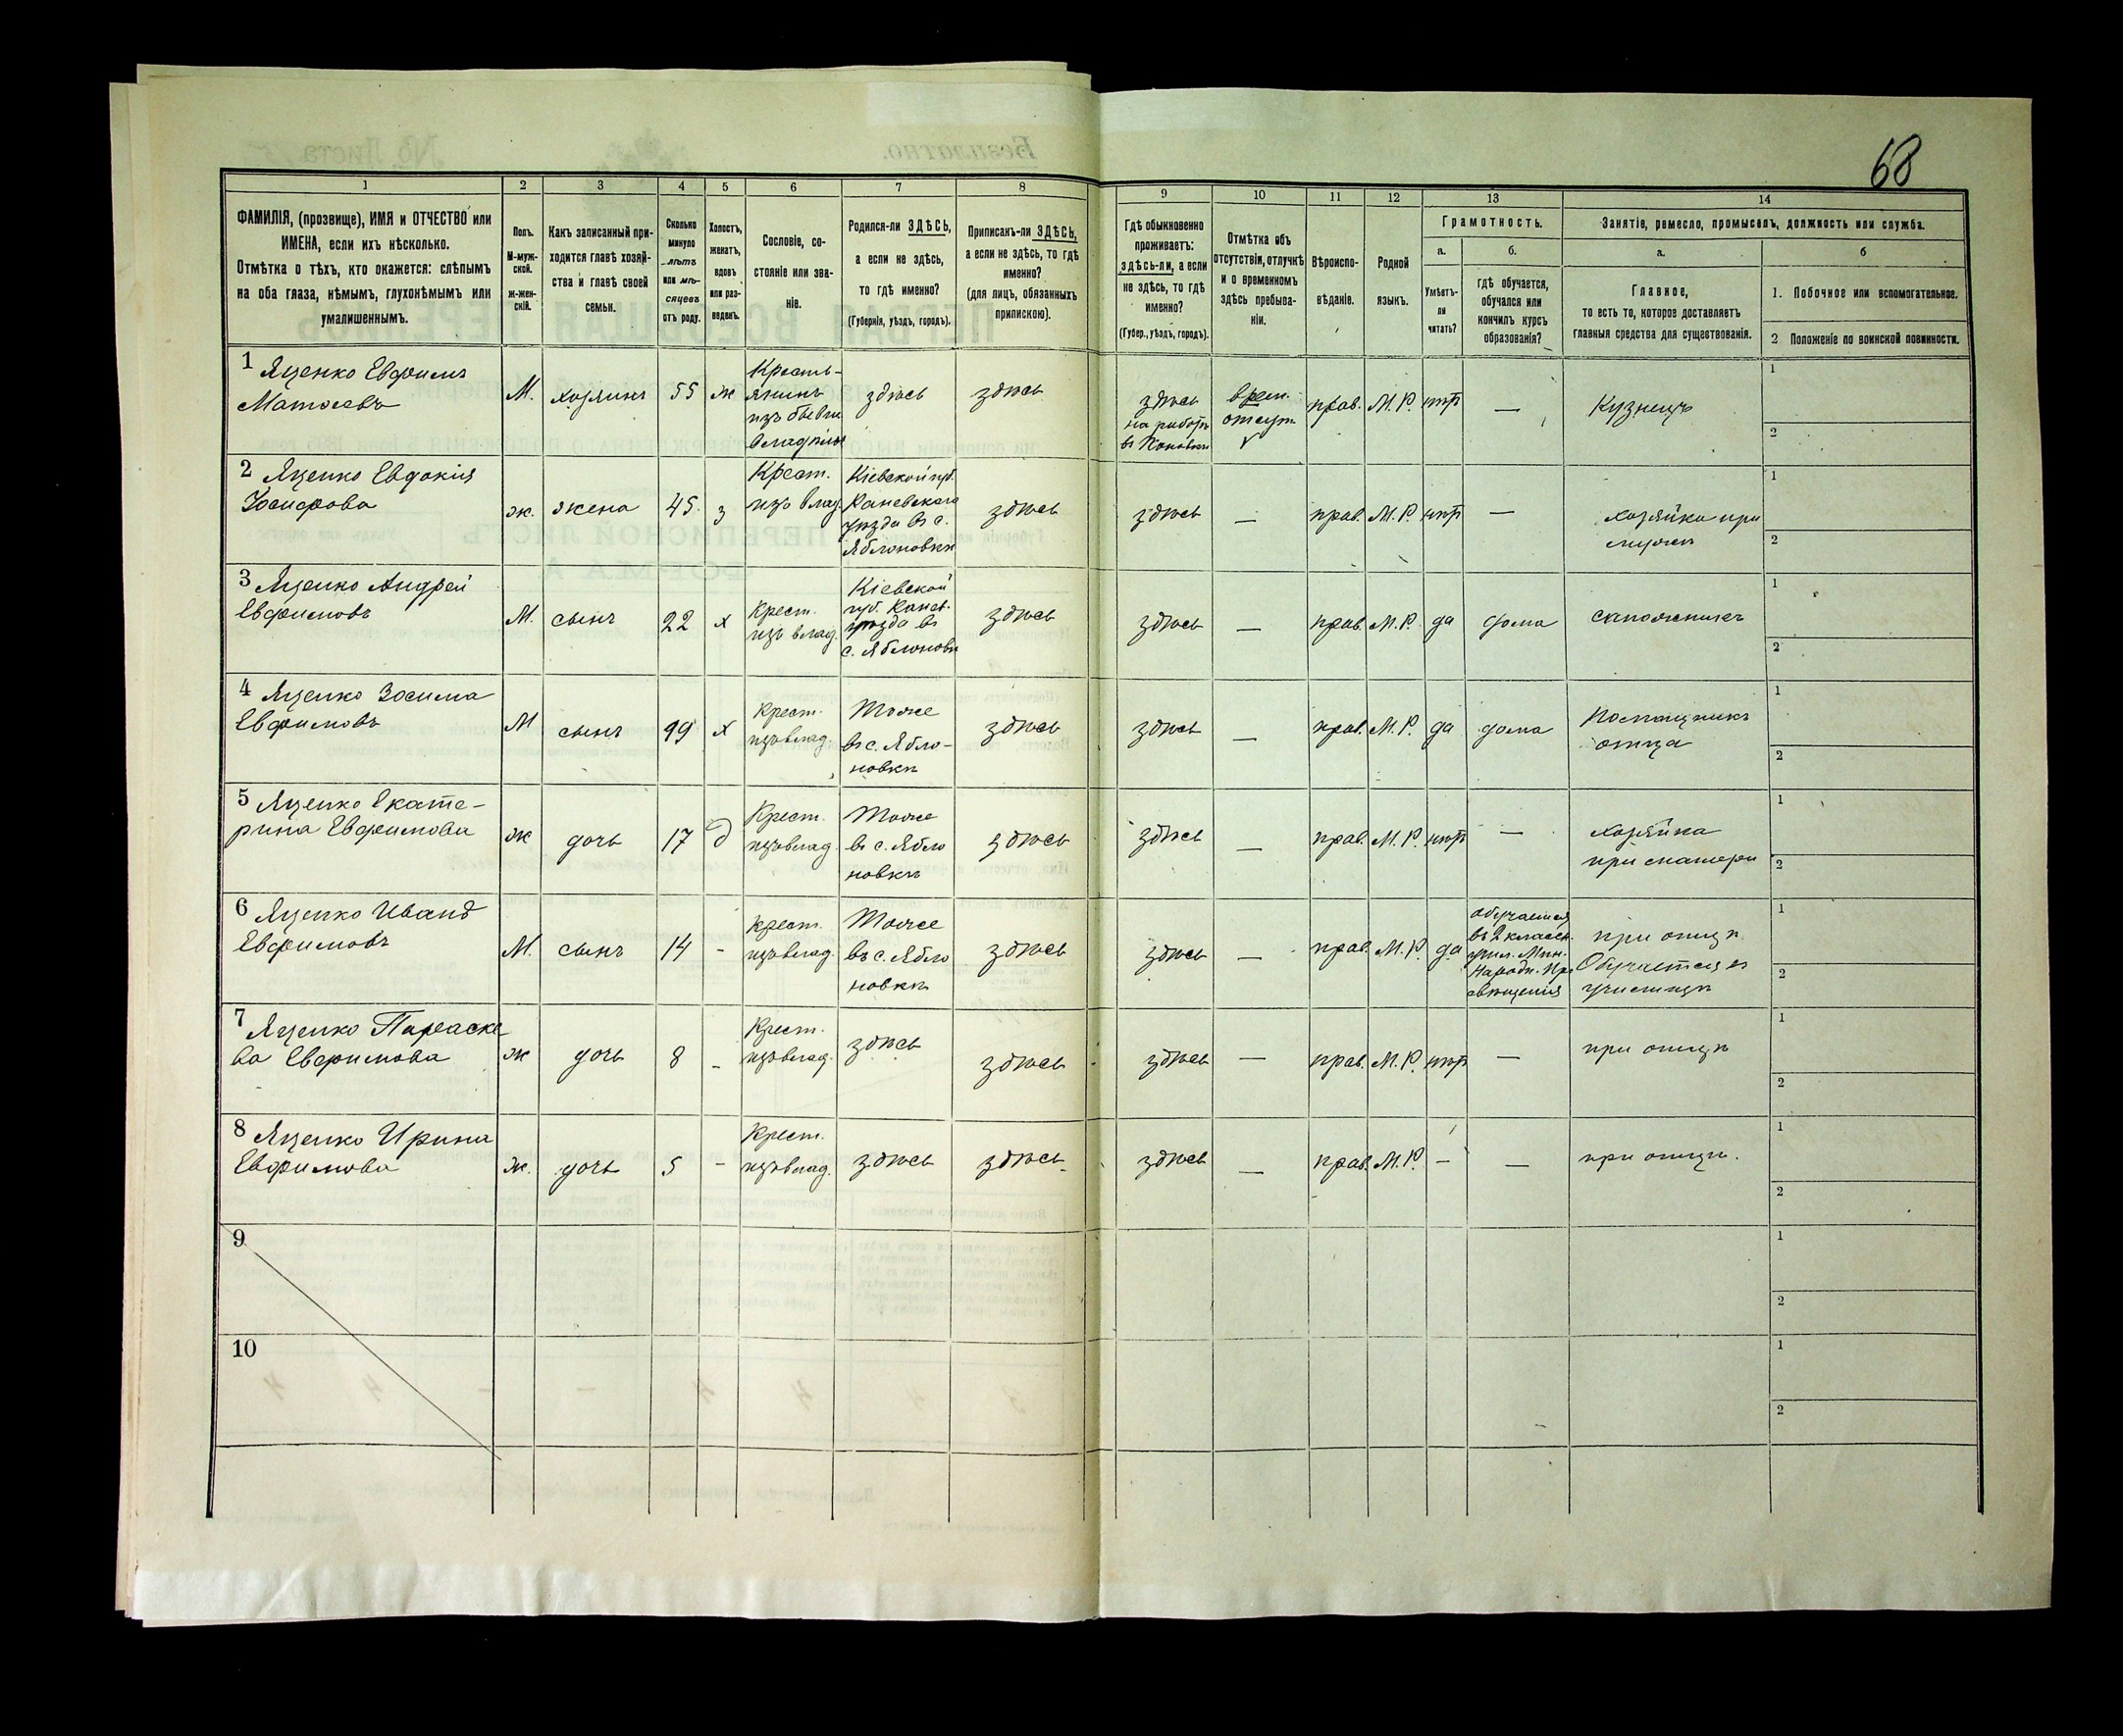 68
1
2
3
4
5
6
7
8
9
10
11
12
13
14
ФАМИЛІЯ, (прозвище), ИМЯ и ОТЧЕСТВО или
ИМЕНА, если ихъ нѣсколько.
Отмѣтка о тѣхъ, кто окажется: слѣпымъ
на оба глаза, нѣмымъ, глухонѣмымъ или
умалишеннымъ.
Полъ.
М-муж-
ской.
ж-жен-
скій.
Какъ записанный при-
ходится главѣ хозяй-
ства и главѣ своей
семьи.
Сколько
минуло
лѣтъ
или мѣ-
сяцевъ
отъ роду.
Холостъ,
женатъ,
вдовъ
или раз-
веденъ.
Сословіе, со-
стояніе или зва-
ніе.
Родился-ли ЗДѢСЬ,
а если не здѣсь,
то гдѣ именно?
(Губернія, уѣздъ, городъ).
Приписанъ-ли ЗДѢСЬ,
а если не здѣсь, то гдѣ
именно?
(для лицъ, обязанныхъ
припискою).
Гдѣ обыкновенно
проживаетъ:
здѣсь-ли, а если
не здѣсь, то гдѣ
именно?
(Губер., уѣздъ, городъ).
Отмѣтка объ
отсутствіи, отлучкѣ
и о временномъ
здѣсь пребыва-
ніи.
Вѣроиспо-
вѣданіе.
Родной
языкъ.
Грамотность.
а.
Умѣетъ-
ли
читать?
б.
гдѣ обучается,
обучался или
кончилъ курсъ
образованія?
Занятіе, ремесло, промыселъ, должность или служба.
а.
Главное,
то есть то, которое доставляетъ
главныя средства для существованія.
б
1. Побочное или вспомогательное.
2 Положеніе по воинской повинности.
1 Яценко Евфимъ
Матѳеевъ
М. хозяинъ 55 ж
Кресть-
янинъ
изъ бывш
владѣльч
здѣсь здѣсь
здѣсь
на работѣ
врем.
отсут.
прав. М.Р. нѣтъ — Кузнецъ
1
2
2 Яценко Евдокія
Іосифова
ж. жена 45. з
Крест.
изъ влад.
Кіевской губ.
Каневскаго
уѣзда въ с.
Яблоновкѣ
здѣсь здѣсь — прав. М.Р. нѣтъ —
хозяйка при
мужѣ
1
2
3 Яценко Андрей
Евфимовъ
М. сынъ 22 х
Крест.
изъ влад.
Кіевской
губ. Канев.
уѣзда въ
с. Яблоновк
здѣсь здѣсь — прав. М.Р. да дома сапожникъ
1
2
4 Яценко Зосима
Евфимовъ
М сынъ 19 х
Крест.
изъ влад.
Тоже
въ с. Ябло-
новкѣ
здѣсь здѣсь — прав. М.Р. да дома
Помощникъ
отца
1
2
5 Яценко Екате-
рина Евфимова
ж дочь 17 д
Крест.
изъ влад.
Тоже
въ с. Ябло
новкѣ
здѣсь здѣсь — прав. М.Р. нѣтъ —
хозяйка
при матери
1
2
6 Яценко Иванъ
Евфимовъ
М. сынъ 14 -
Крест.
изъ влад.
Тоже
въ с. Ябло
новкѣ
здѣсь здѣсь — прав. М.Р. да
обучается
въ 2 классн.
учил. Мин.
Народн. Про
свѣщенія
при отцѣ.
Обучается въ
училищѣ
1
2
7 Яценко Параске
ва Евфимова
ж дочь 8 -
Крест.
изъ влад.
здѣсь здѣсь здѣсь — прав. М.Р. нѣтъ — при отцѣ
1
2
8 Яценко Ирина
Евфимова
ж. дочь 5 -
Крест.
изъ влад.
здѣсь здѣсь здѣсь — прав. М.Р. — — при отцѣ.
1
2
9
1
2
10
1
2